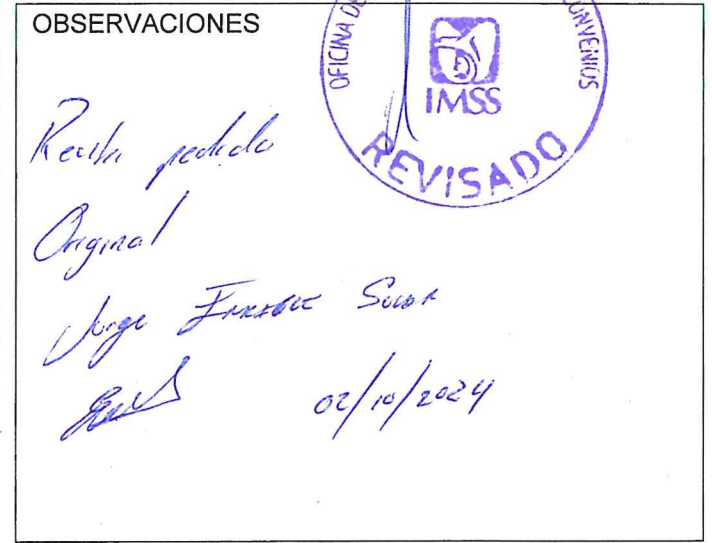 OBSERVACIONES
OFICINA DE CONVENIOS
IMSS
REVISADO
Recibi pedido
Original
Jorge Enrique
02/10/2024